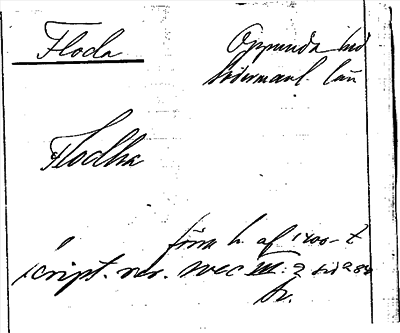 Floda
Oppunda hd
Södermanl. län
Flodha
förra h. af 1400-t
script. rer. svec III: 2 sid